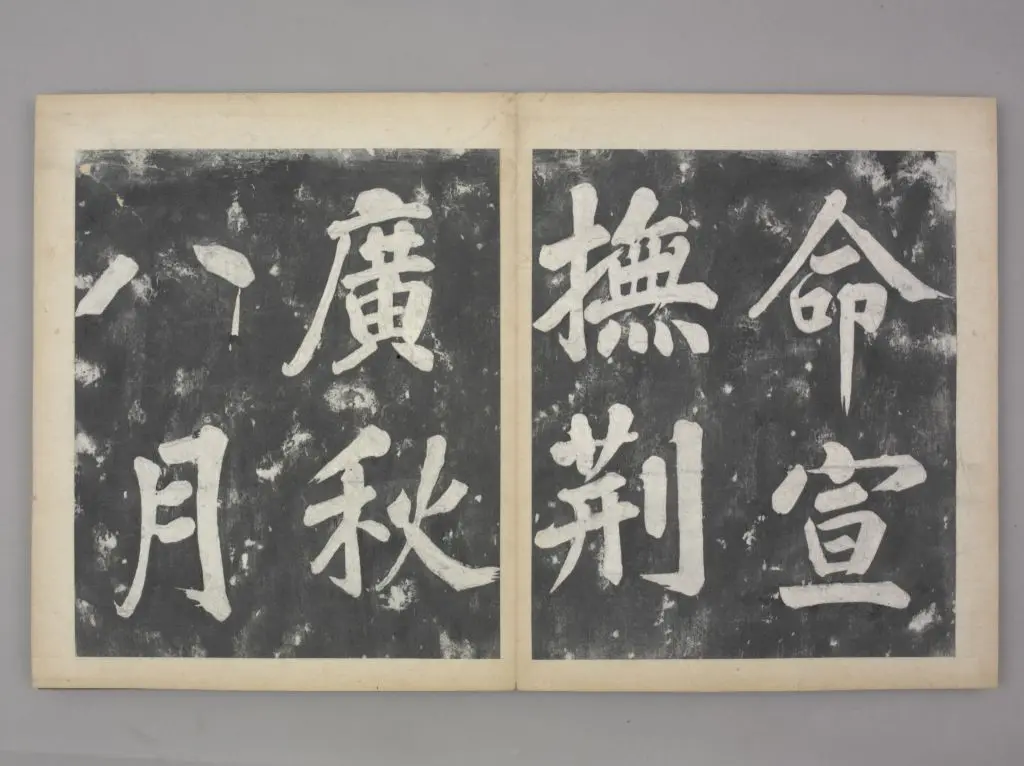 命宣
撫荆
廣秋
八月